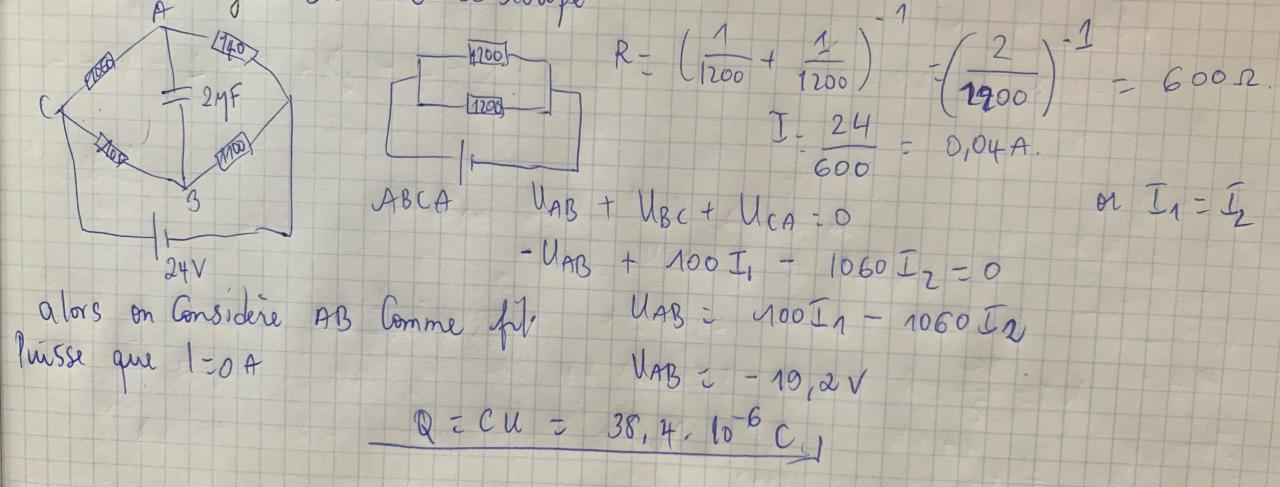 A
140
1060
C
2μF
100
1100
B
24V
1200
1200
R = (1/1200 + 1/1200)^-1 = (2/1200)^-1 = 600Ω.
I = 24/600 = 0,04A.
ABCA U_AB + U_BC + U_CA = 0
or I_1 = I_2
- U_AB + 100 I_1 - 1060 I_2 = 0
alors on Considère AB Comme fil.
U_AB = 100 I_1 - 1060 I_2
Puisse que I = 0 A
U_AB = - 19,2 V
Q = CU = 38,4 . 10^-6 C